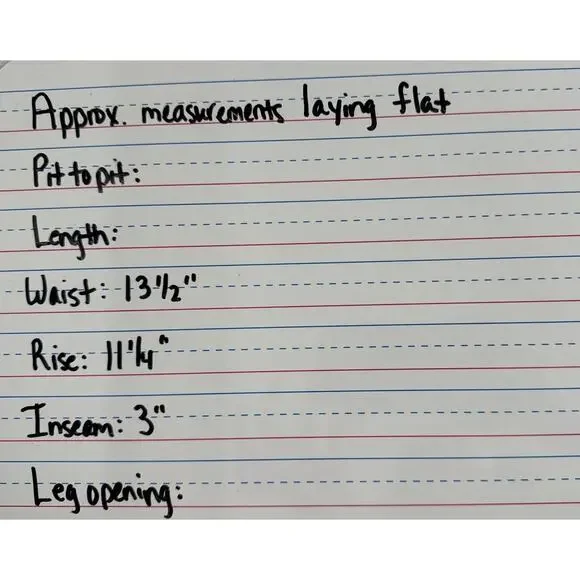 Approx. measurements laying flat
Pit to pit:
Length:
Waist: 13 1/2"
Rise: 11 1/4"
Inseam: 3"
Leg opening: